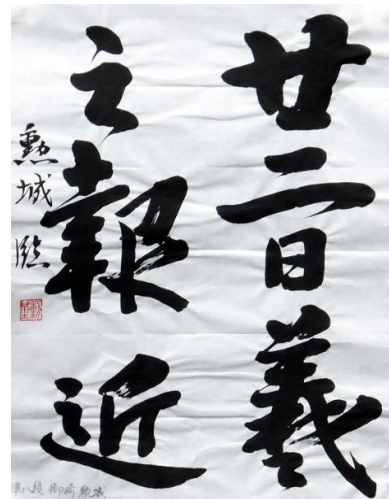 廿二日羲
之報近
勲城臨
準八段 柳崎 勲城